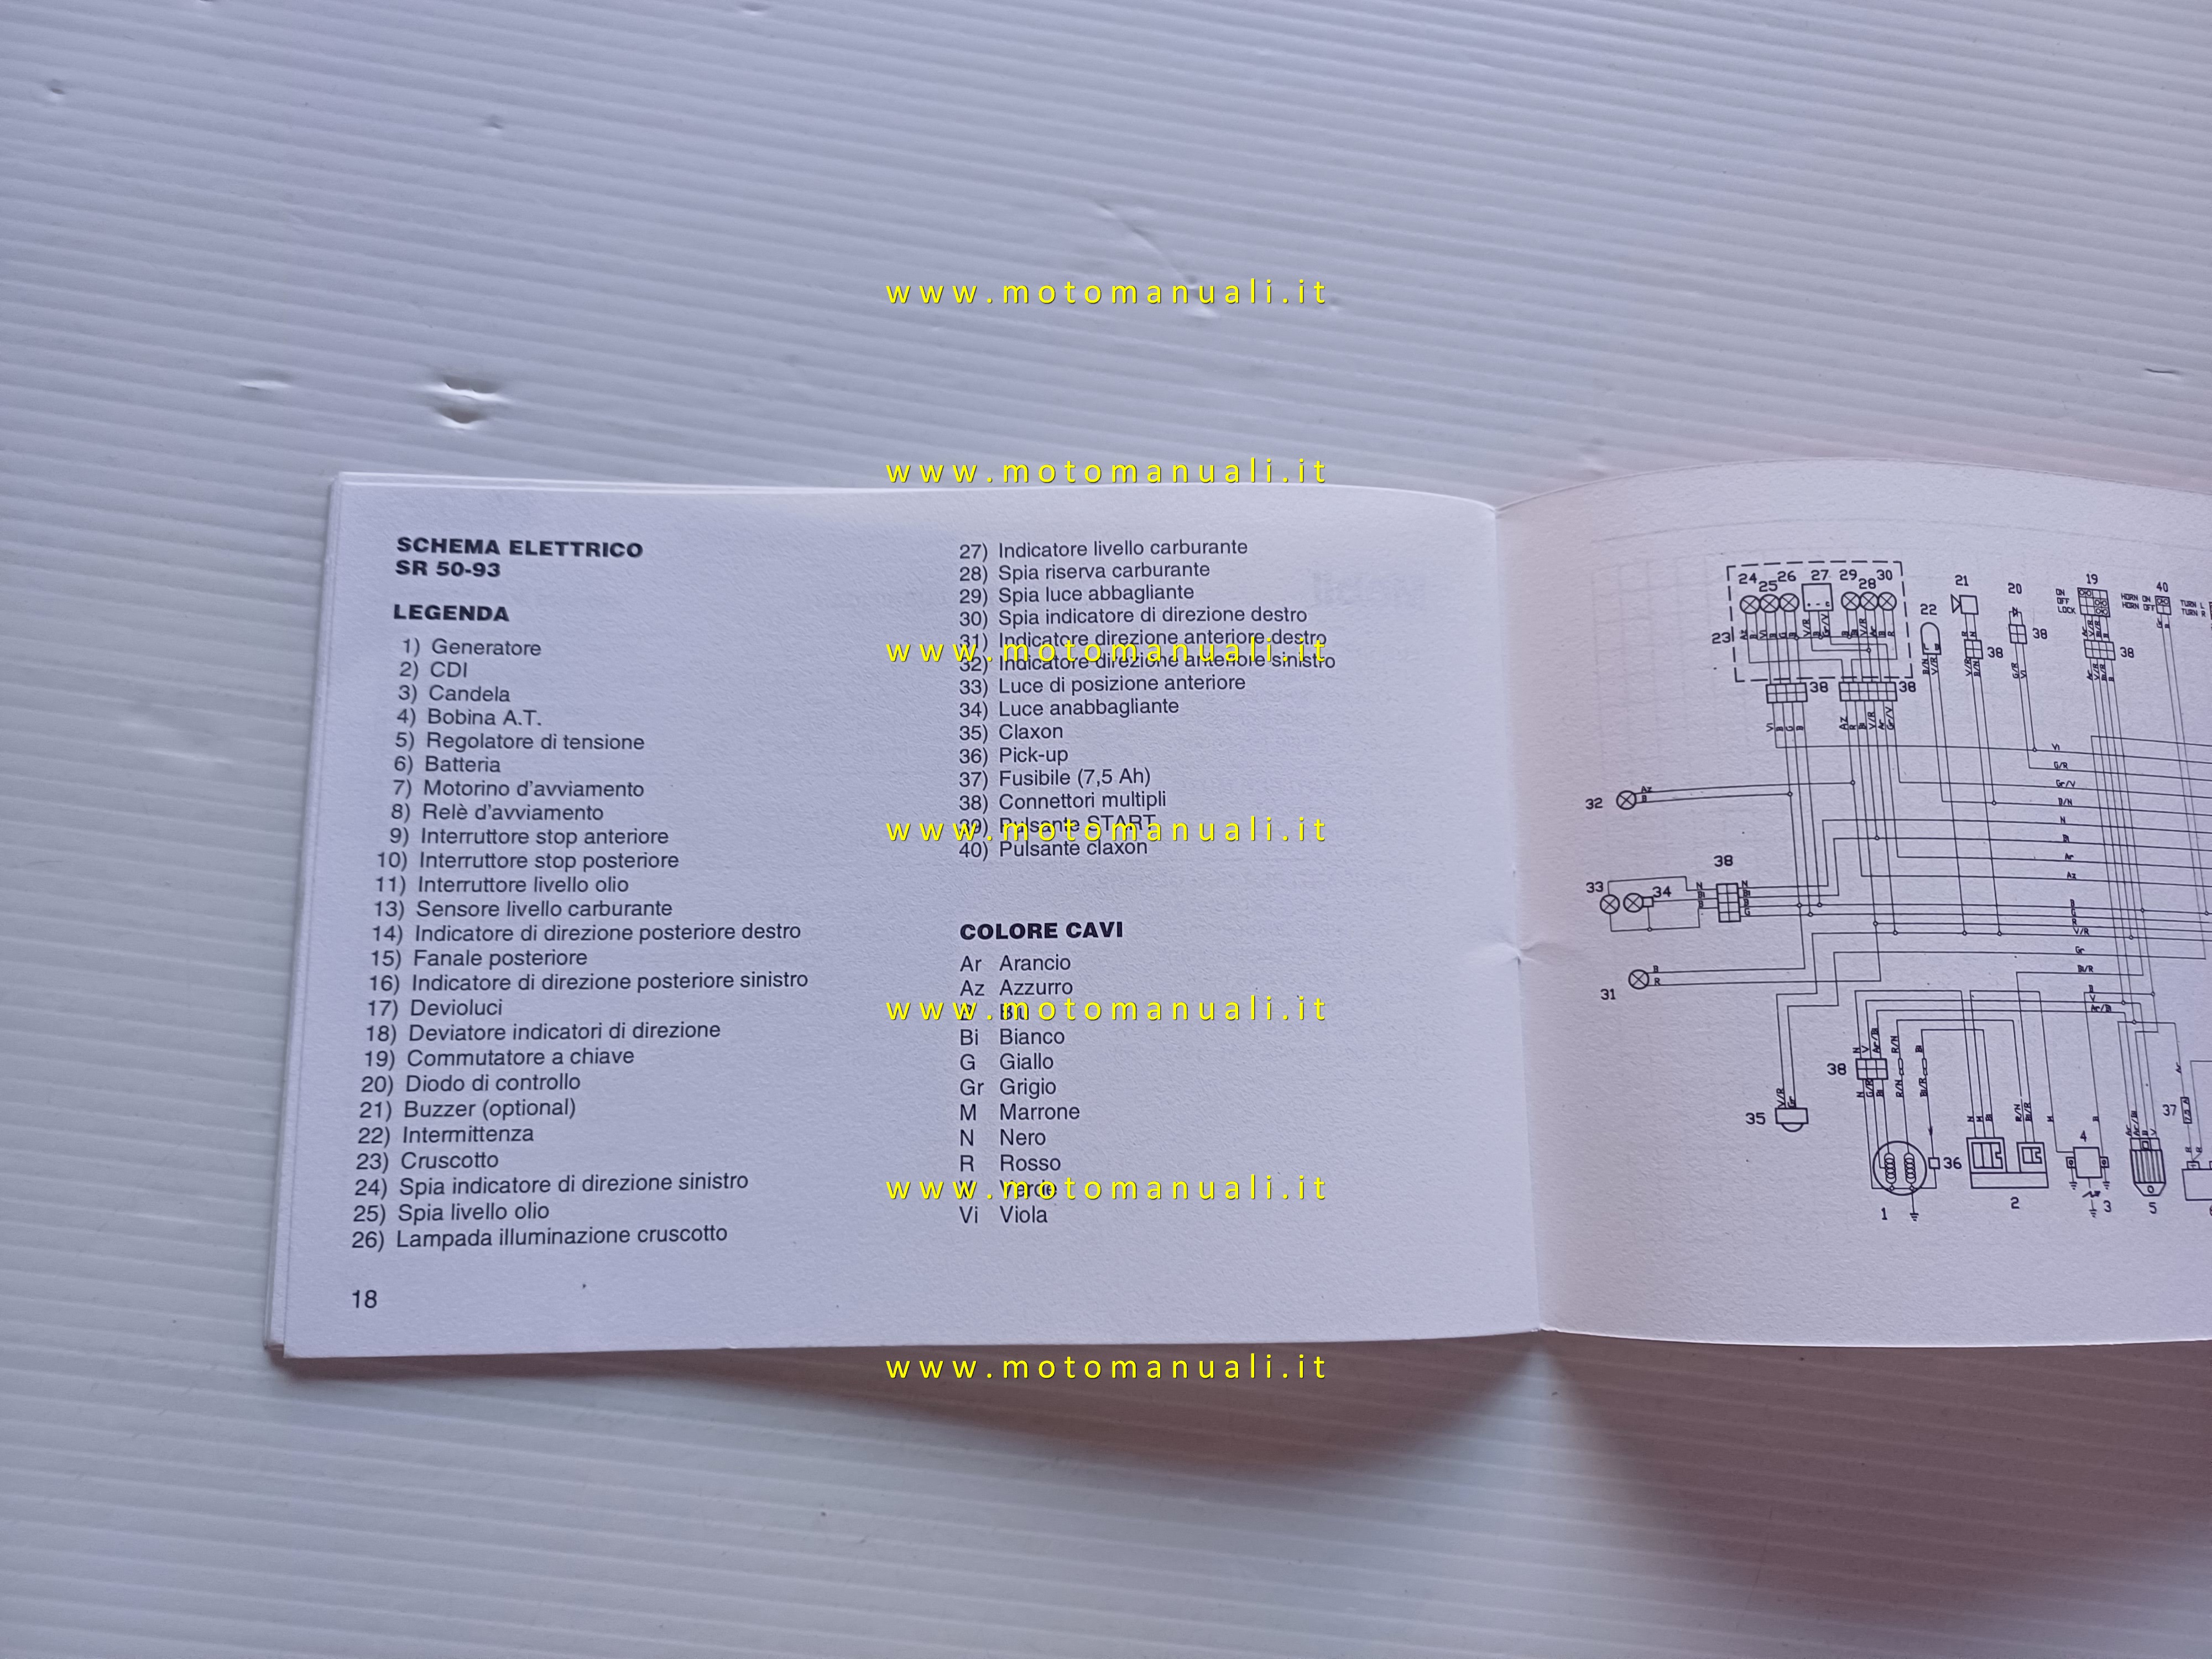 www.motomanuali.it
www.motomanuali.it
SCHEMA ELETTRICO
SR 50-93
LEGENDA
1) Generatore
2) CDI
3) Candela
4) Bobina A.T.
5) Regolatore di tensione
6) Batteria
7) Motorino d'avviamento
8) Relè d'avviamento
9) Interruttore stop anteriore
10) Interruttore stop posteriore
11) Interruttore livello olio
13) Sensore livello carburante
14) Indicatore di direzione posteriore destro
15) Fanale posteriore
16) Indicatore di direzione posteriore sinistro
17) Devioluci
18) Deviatore indicatori di direzione
19) Commutatore a chiave
20) Diodo di controllo
21) Buzzer (optional)
22) Intermittenza
23) Cruscotto
24) Spia indicatore di direzione sinistro
25) Spia livello olio
26) Lampada illuminazione cruscotto
18
27) Indicatore livello carburante
28) Spia riserva carburante
29) Spia luce abbagliante
30) Spia indicatore di direzione destro
31) Indicatore direzione anteriore destro
www.motomanuali.it
32) Indicatore direzione anteriore sinistro
33) Luce di posizione anteriore
34) Luce anabbagliante
35) Claxon
36) Pick-up
37) Fusibile (7,5 Ah)
38) Connettori multipli
39) Pulsante START
www.motomanuali.it
40) Pulsante claxon
COLORE CAVI
Ar Arancio
Az Azzurro
B Blu
www.motomanuali.it
Bi Bianco
G Giallo
Gr Grigio
M Marrone
N Nero
R Rosso
V Verde
www.motomanuali.it
Vi Viola
www.motomanuali.it
24 25 26 27 29 28 30
23
38 38
22
21
38
20
38
19
ON
OFF
LOCK
38
40
HORN ON
HORN OFF
TURN L
TURN R
Vi
G/R
Gr/V
B/N
N
Bi
Ar
Az
B
G
R
V/R
Gr
Bi/R
B
V
Ar/Bi
32
Az
B
38
33
34
31
B
R
38
35
V/R
Gr
36
1
2
4
3
5
37